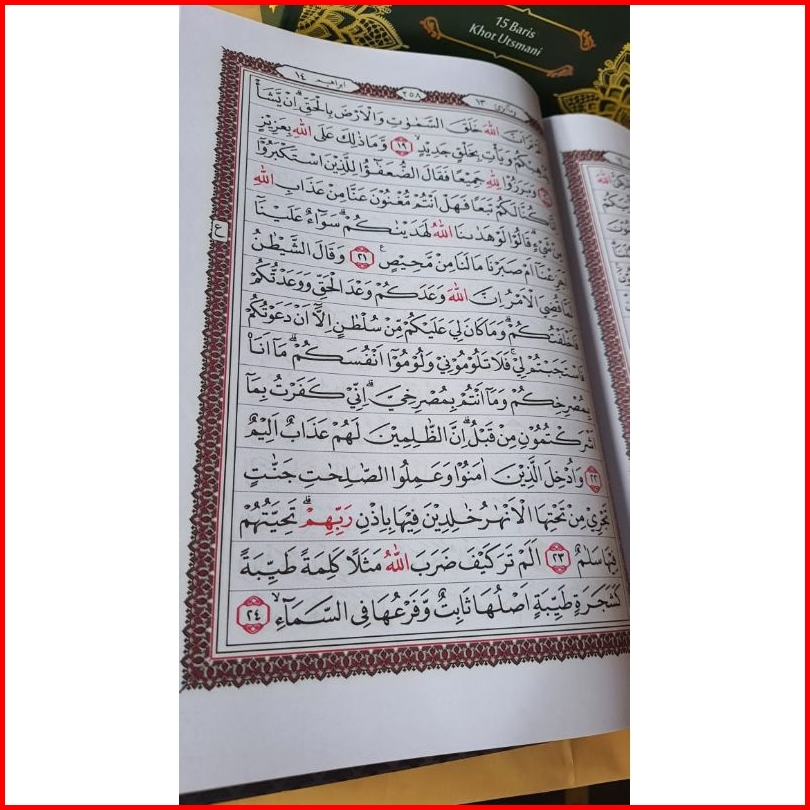 15 Baris
Khot Utsmani
ابراهيم ١٤
٢٥٨
١٣
اللّٰهَ خَلَقَ السَّمٰوٰتِ وَالْاَرْضَ بِالْحَقِّۗ اِنْ يَّشَأْ
وَيَأْتِ بِخَلْقٍ جَدِيْدٍۙ ١٩ وَّمَا ذٰلِكَ عَلَى اللّٰهِ بِعَزِيْزٍ
وَبَرَزُوْا لِلّٰهِ جَمِيْعًا فَقَالَ الضُّعَفٰۤؤُا لِلَّذِيْنَ اسْتَكْبَرُوْٓا
كُنَّا لَكُمْ تَبَعًا فَهَلْ اَنْتُمْ مُّغْنُوْنَ عَنَّا مِنْ عَذَابِ اللّٰهِ
مِنْ شَيْءٍۗ قَالُوْا لَوْ هَدٰىنَا اللّٰهُ لَهَدَيْنٰكُمْۗ سَوَاۤءٌ عَلَيْنَآ
اَجَزِعْنَآ اَمْ صَبَرْنَا مَا لَنَا مِنْ مَّحِيْصٍࣖ ٢١ وَقَالَ الشَّيْطٰنُ
لَمَّا قُضِيَ الْاَمْرُ اِنَّ اللّٰهَ وَعَدَكُمْ وَعْدَ الْحَقِّ وَوَعَدْتُّكُمْ
فَاَخْلَفْتُكُمْۗ وَمَا كَانَ لِيَ عَلَيْكُمْ مِّنْ سُلْطٰنٍ اِلَّآ اَنْ دَعَوْتُكُمْ
فَاسْتَجَبْتُمْ لِيْۚ فَلَا تَلُوْمُوْنِيْ وَلُوْمُوْٓا اَنْفُسَكُمْۗ مَآ اَنَا۠
بِمُصْرِخِكُمْ وَمَآ اَنْتُمْ بِمُصْرِخِيَّۗ اِنِّيْ كَفَرْتُ بِمَآ
اَشْرَكْتُمُوْنِ مِنْ قَبْلُۗ اِنَّ الظّٰلِمِيْنَ لَهُمْ عَذَابٌ اَلِيْمٌ
٢٢ وَاُدْخِلَ الَّذِيْنَ اٰمَنُوْا وَعَمِلُوا الصّٰلِحٰتِ جَنّٰتٍ
تَجْرِيْ مِنْ تَحْتِهَا الْاَنْهٰرُ خٰلِدِيْنَ فِيْهَا بِاِذْنِ رَبِّهِمْۗ تَحِيَّتُهُمْ
فِيْهَا سَلٰمٌ ٢٣ اَلَمْ تَرَ كَيْفَ ضَرَبَ اللّٰهُ مَثَلًا كَلِمَةً طَيِّبَةً
كَشَجَرَةٍ طَيِّبَةٍ اَصْلُهَا ثَابِتٌ وَّفَرْعُهَا فِى السَّمَاۤءِۙ ٢٤
ع